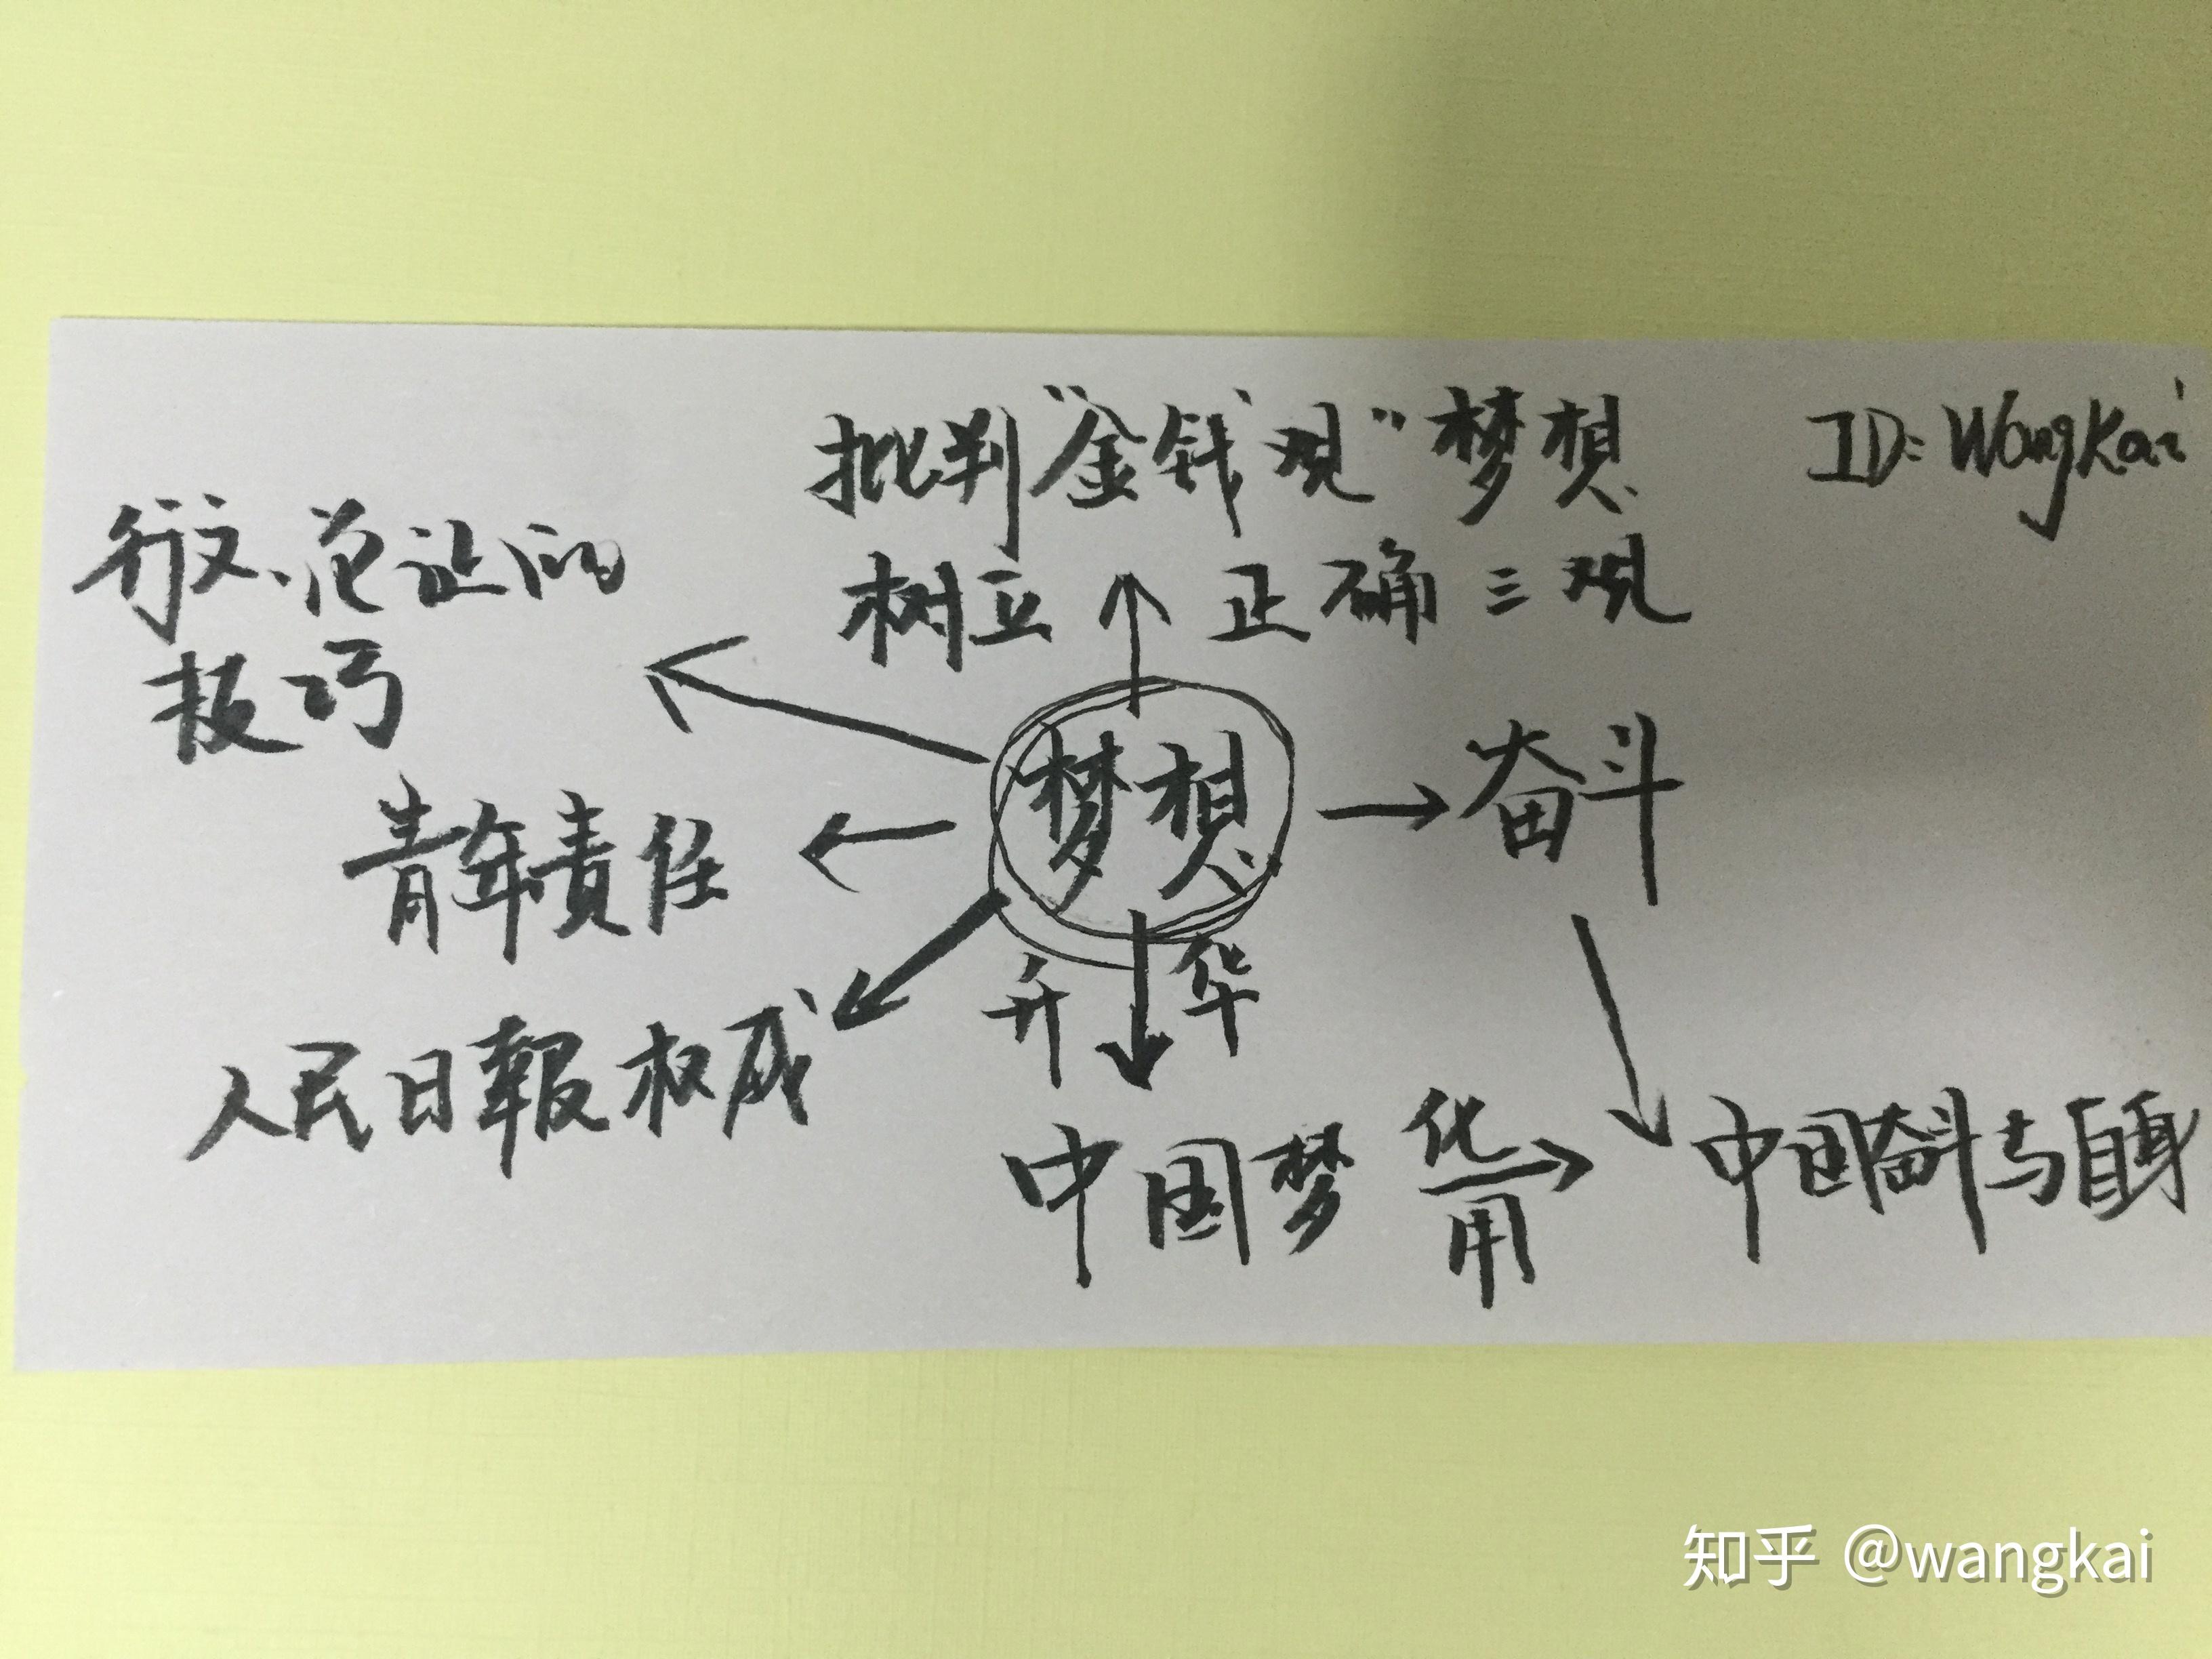 批判“金钱观”梦想
ID: WangKai
行文、范证的
技巧
树立 正确三观
梦想
奋斗
青年责任
升华
人民日報权威
中国梦
化用
中国奋斗与自身
知乎 @wangkai